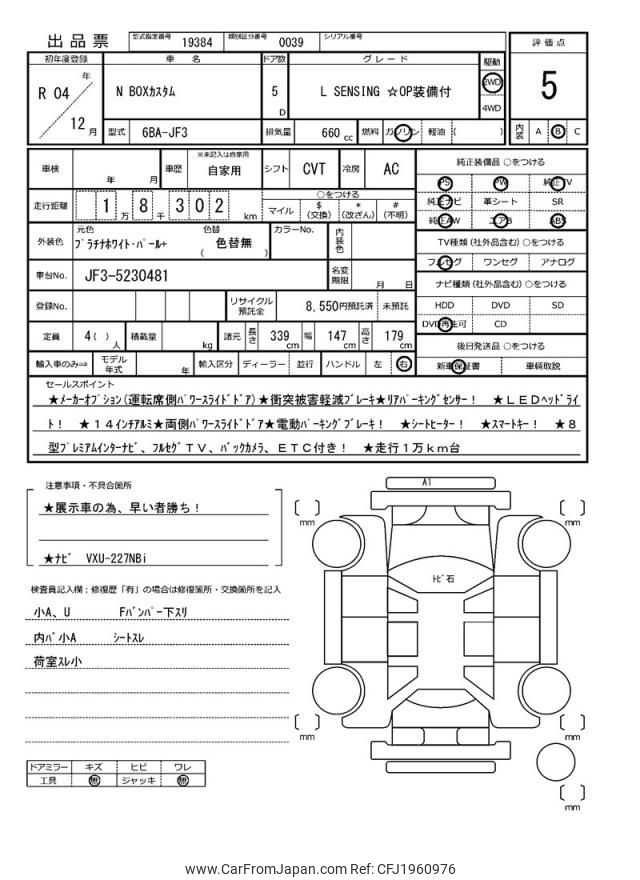 出品票 型式指定番号 19384 類別区分番号 0039 シリアル番号
評価点
5
内装 A B C
初年度登録 車名 ドア数 グレード 駆動
R 04 年 12 月
N BOXカスタム 5 D L SENSING ☆OP装備付 2WD 4WD
型式 6BA-JF3 排気量 660 cc 燃料 ガソリン 軽油 ( )
車検 年 月 車歴 ※未記入は自家用 自家用 シフト CVT 冷房 AC
走行距離 1 万 8 千 3 0 2 km
○をつける
マイル $ (交換) * (改ざん) # (不明)
外装色 元色 プラチナホワイト・パール+ 色替 ( 色替無 ) カラーNo. 内装色
車台No. JF3-5230481 名変期限 月 日
登録No. リサイクル預託金 8,550円預託済 未預託
定員 4( ) 人 積載量 kg 諸元 長さ 339 cm 幅 147 cm 高さ 179 cm
輸入車のみ⇒ モデル年式 年 輸入区分 ディーラー 並行 ハンドル 左 右
純正装備品 ○をつける
PS PW 純正TV
純正ナビ 革シート SR
純正AW エアB ABS
TV種類 (社外品含む) ○をつける
フルセグ ワンセグ アナログ
ナビ種類 (社外品含む) ○をつける
HDD DVD SD
DVD再生可 CD
後日発送品 ○をつける
新車保証書 車輌取説
セールスポイント
★メーカーオプション(運転席側パワースライドドア)★衝突被害軽減ブレーキ★リアパーキングセンサー! ★LEDヘッドライ
ト! ★14インチアルミ★両側パワースライドドア★電動パーキングブレーキ! ★シートヒーター! ★スマートキー! ★8
型プレミアムインターナビ、フルセグTV、バックカメラ、ETC付き! ★走行1万km台
注意事項・不具合箇所
★展示車の為、早い者勝ち!
★ナビ VXU-227NBi
検査員記入欄:修復歴「有」の場合は修復箇所・交換箇所を記入
小A、U Fバンパー下スリ
内バ小A シートスレ
荷室スレ小
ドアミラー キズ ヒビ ワレ
工具 無 ジャッキ 無
A1
トビ石
mm
mm
mm
mm
mm
www.CarFromJapan.com Ref: CFJ1960976